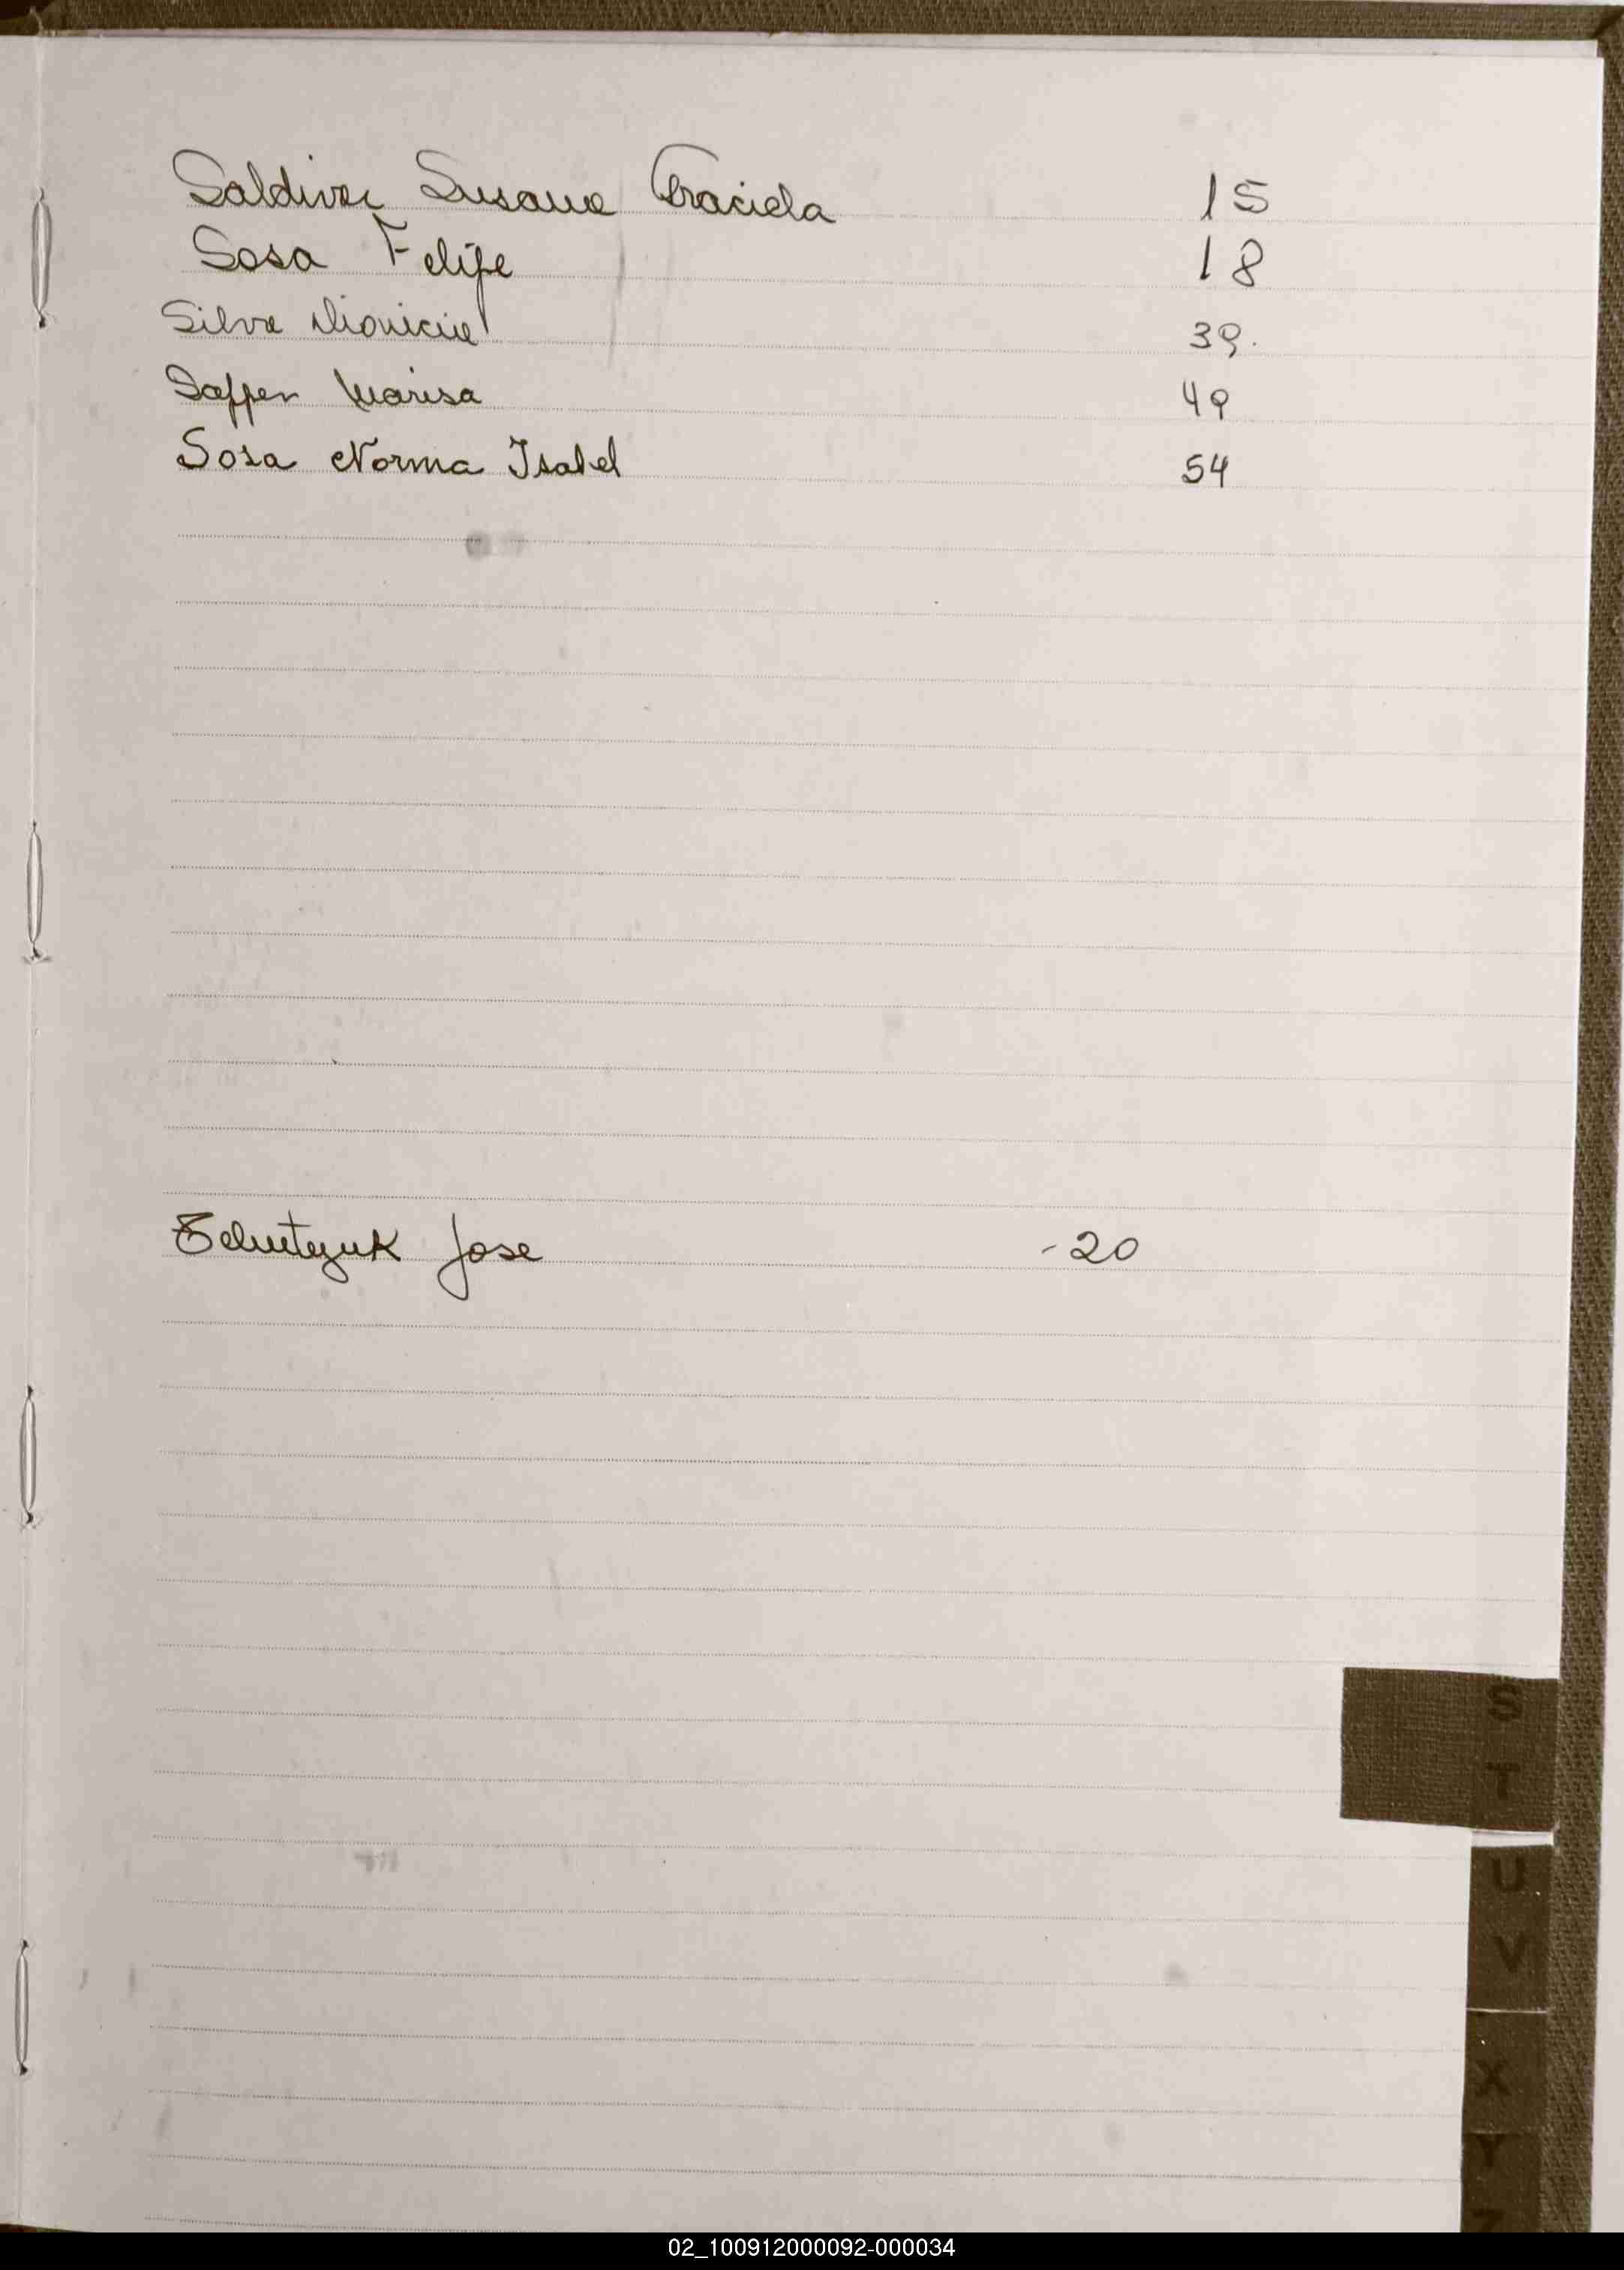 Saldivar Susana Graciela 15
Sosa Felipe 18
Silva Dionicia 39.
Saffer Marisa 49
Sosa Norma Isabel 54
Jose -20
S
T
U
V
X
Y
Z
02_100912000092-000034